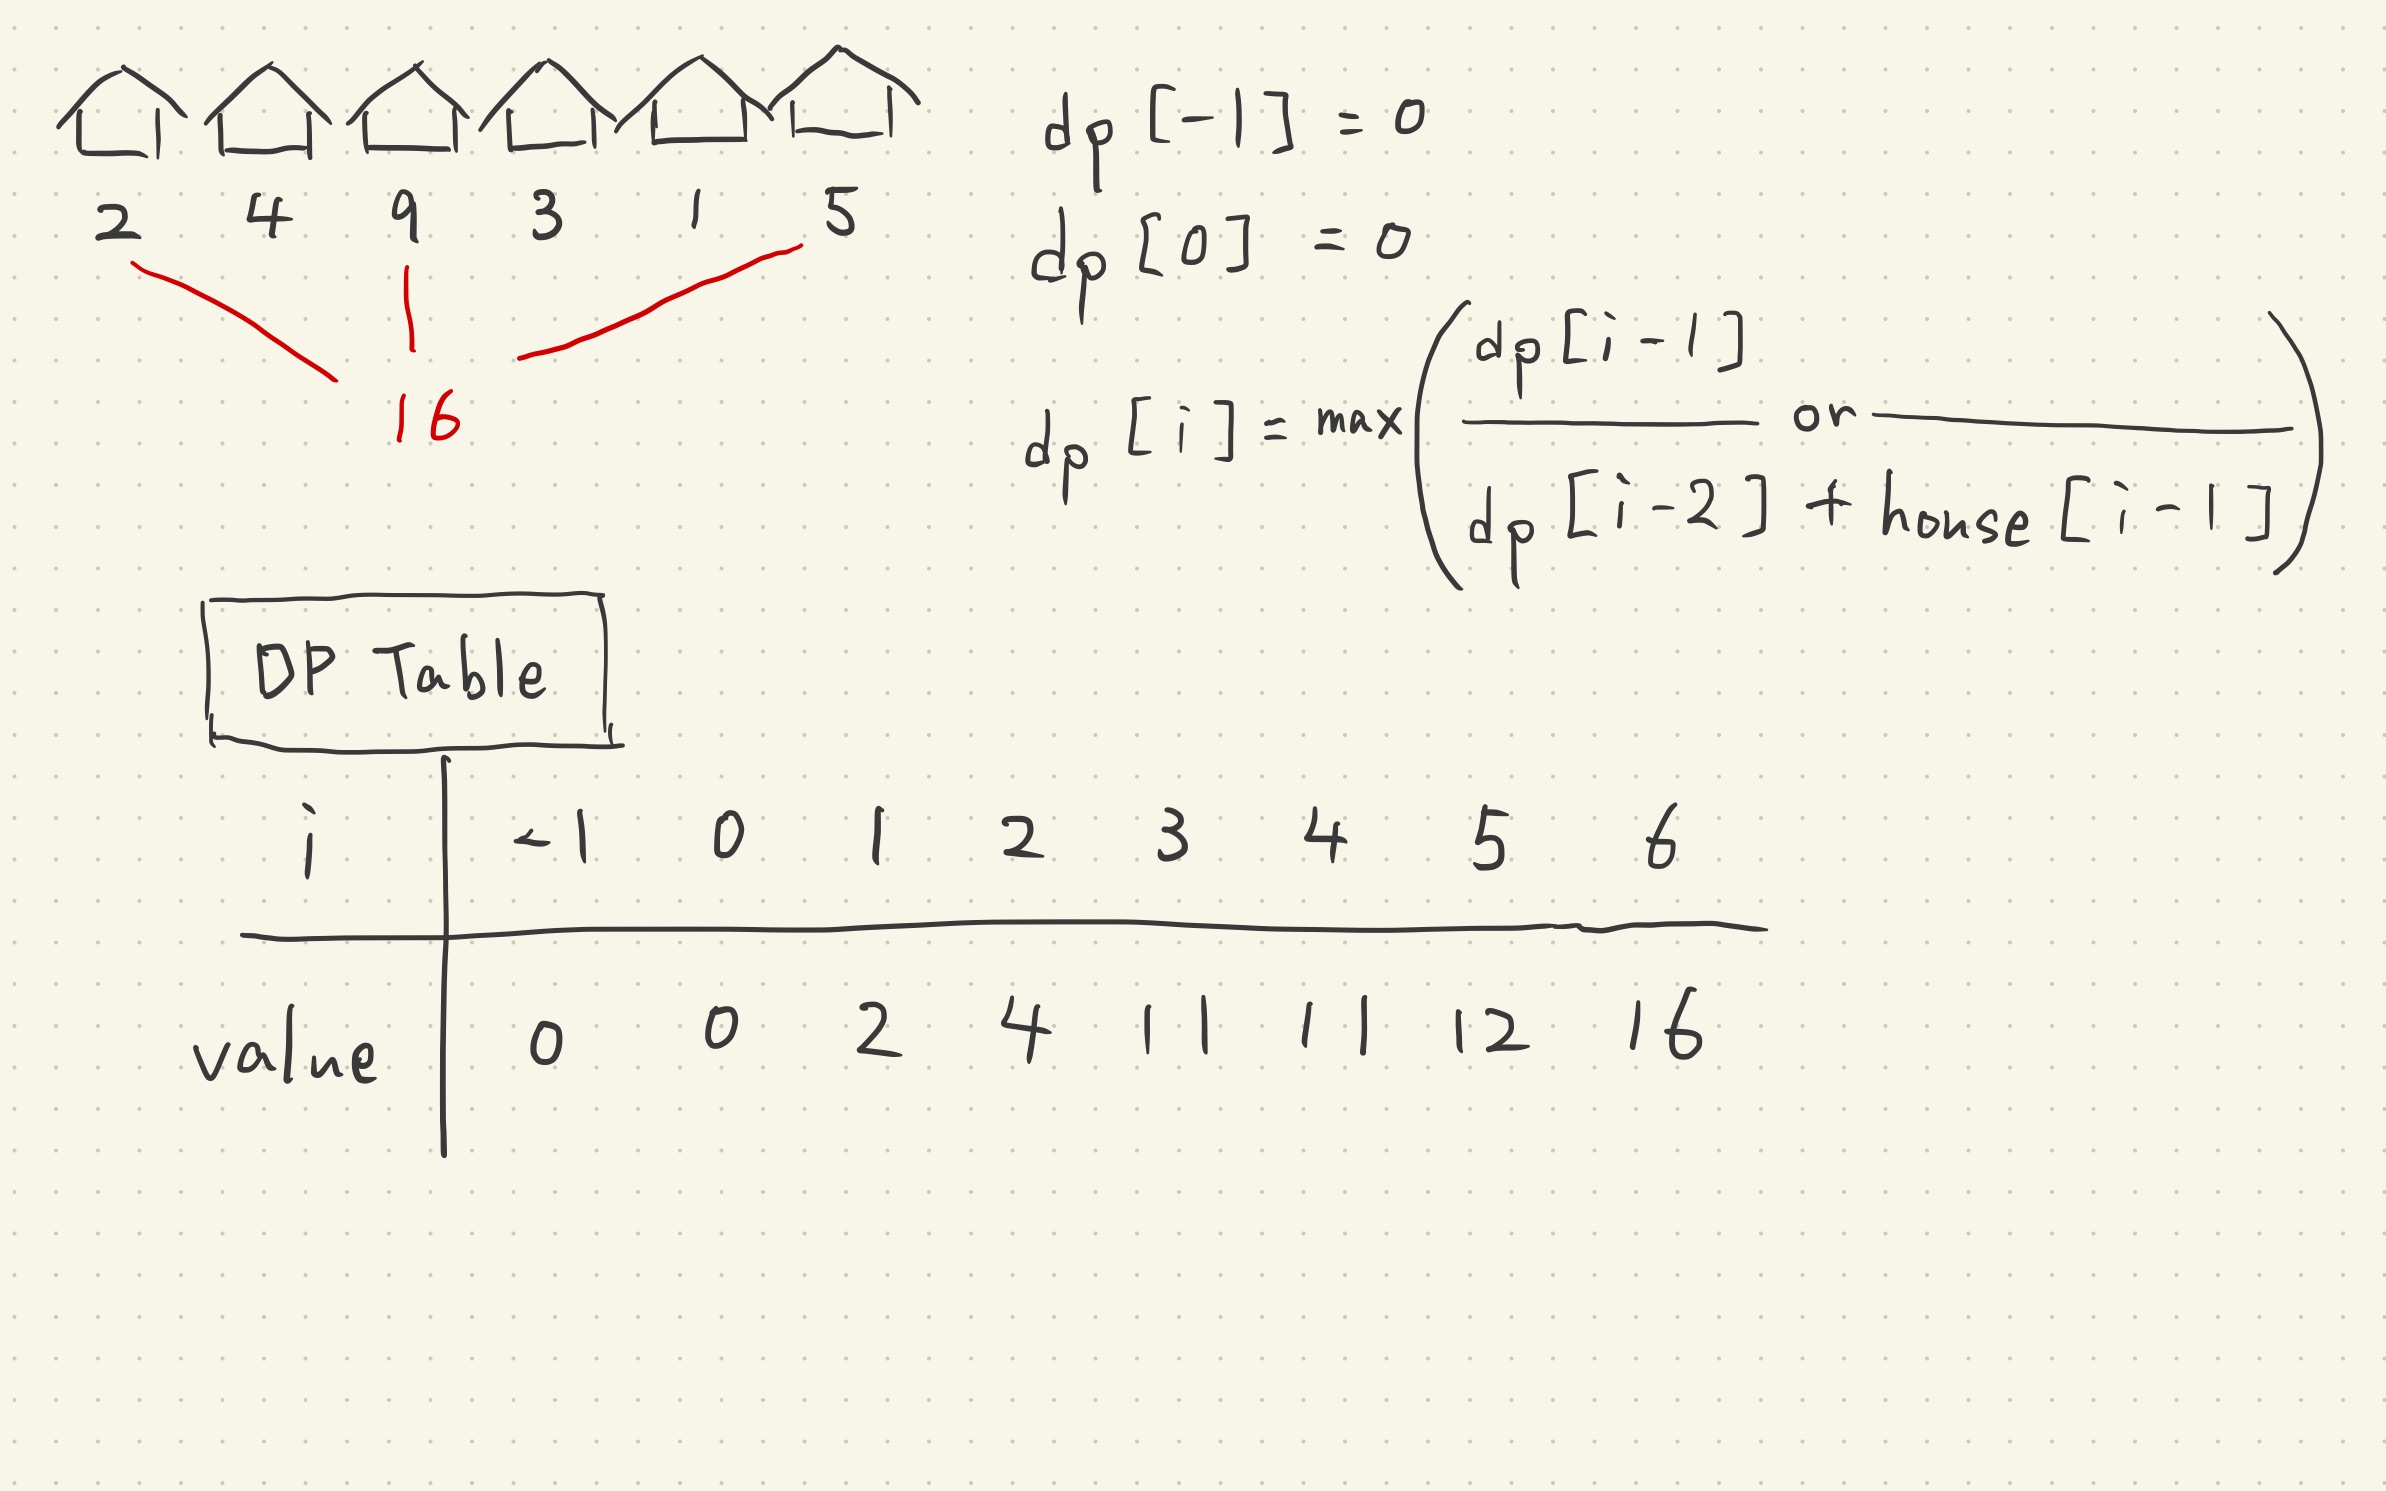 2 4 9 3 1 5
16
dp[-1] = 0
dp[0] = 0
dp[i] = max(dp[i-1] or dp[i-2] + house[i-1])
DP Table
i -1 0 1 2 3 4 5 6
value 0 0 2 4 11 11 12 16